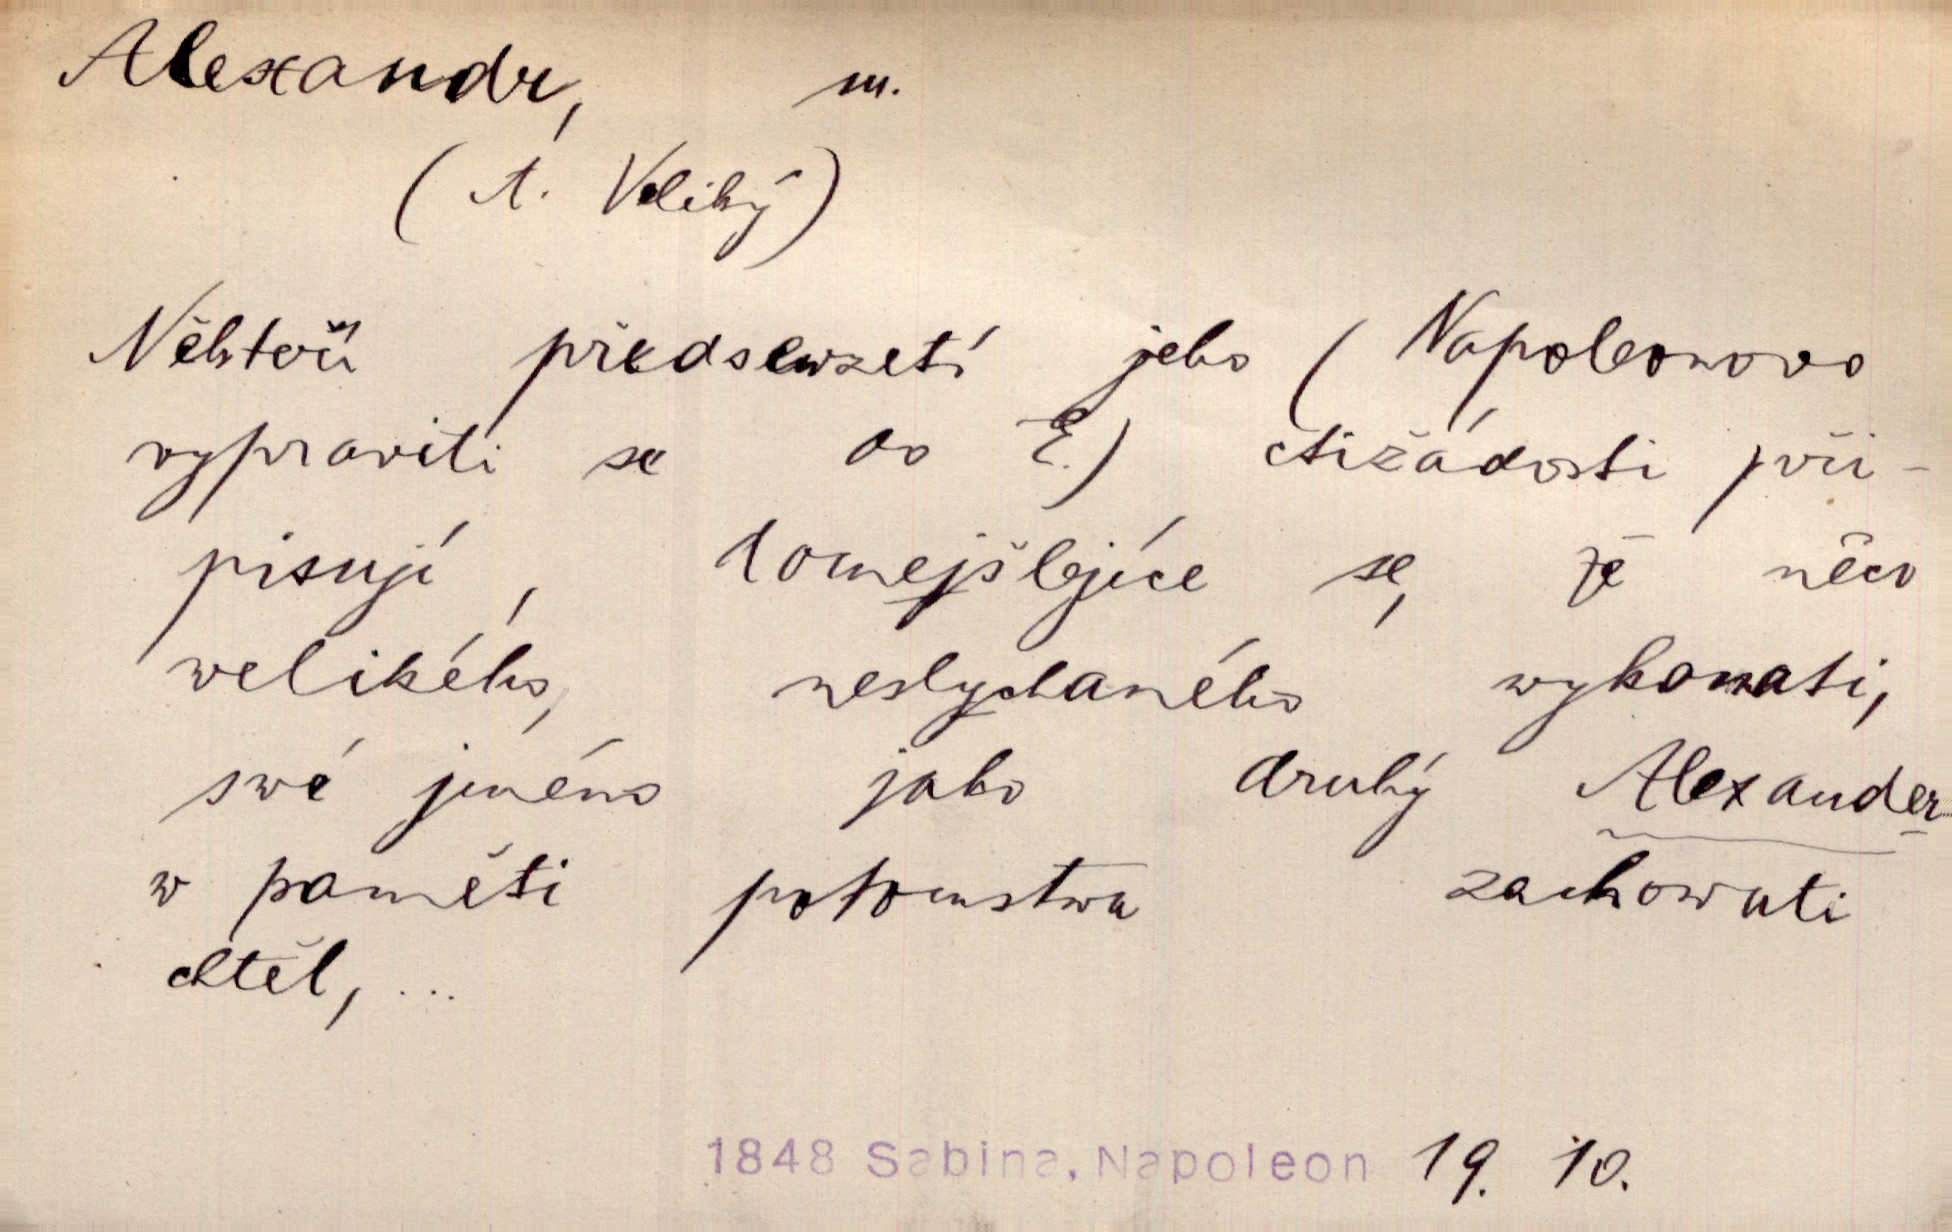 Alexandr, m.
(A. Veliký)
Někteří předsewzetí jeho (Napoleonovo
vypraviti se do E.) ctižádosti při-
pisují, domejšlejíce se, že něco
welikého, neslychaného wykonati,
swé jméno jako druhý Alexander
w paměti potomstwa zachowati
chtěl, ...
1848 Sabina, Napoleon 19. 10.